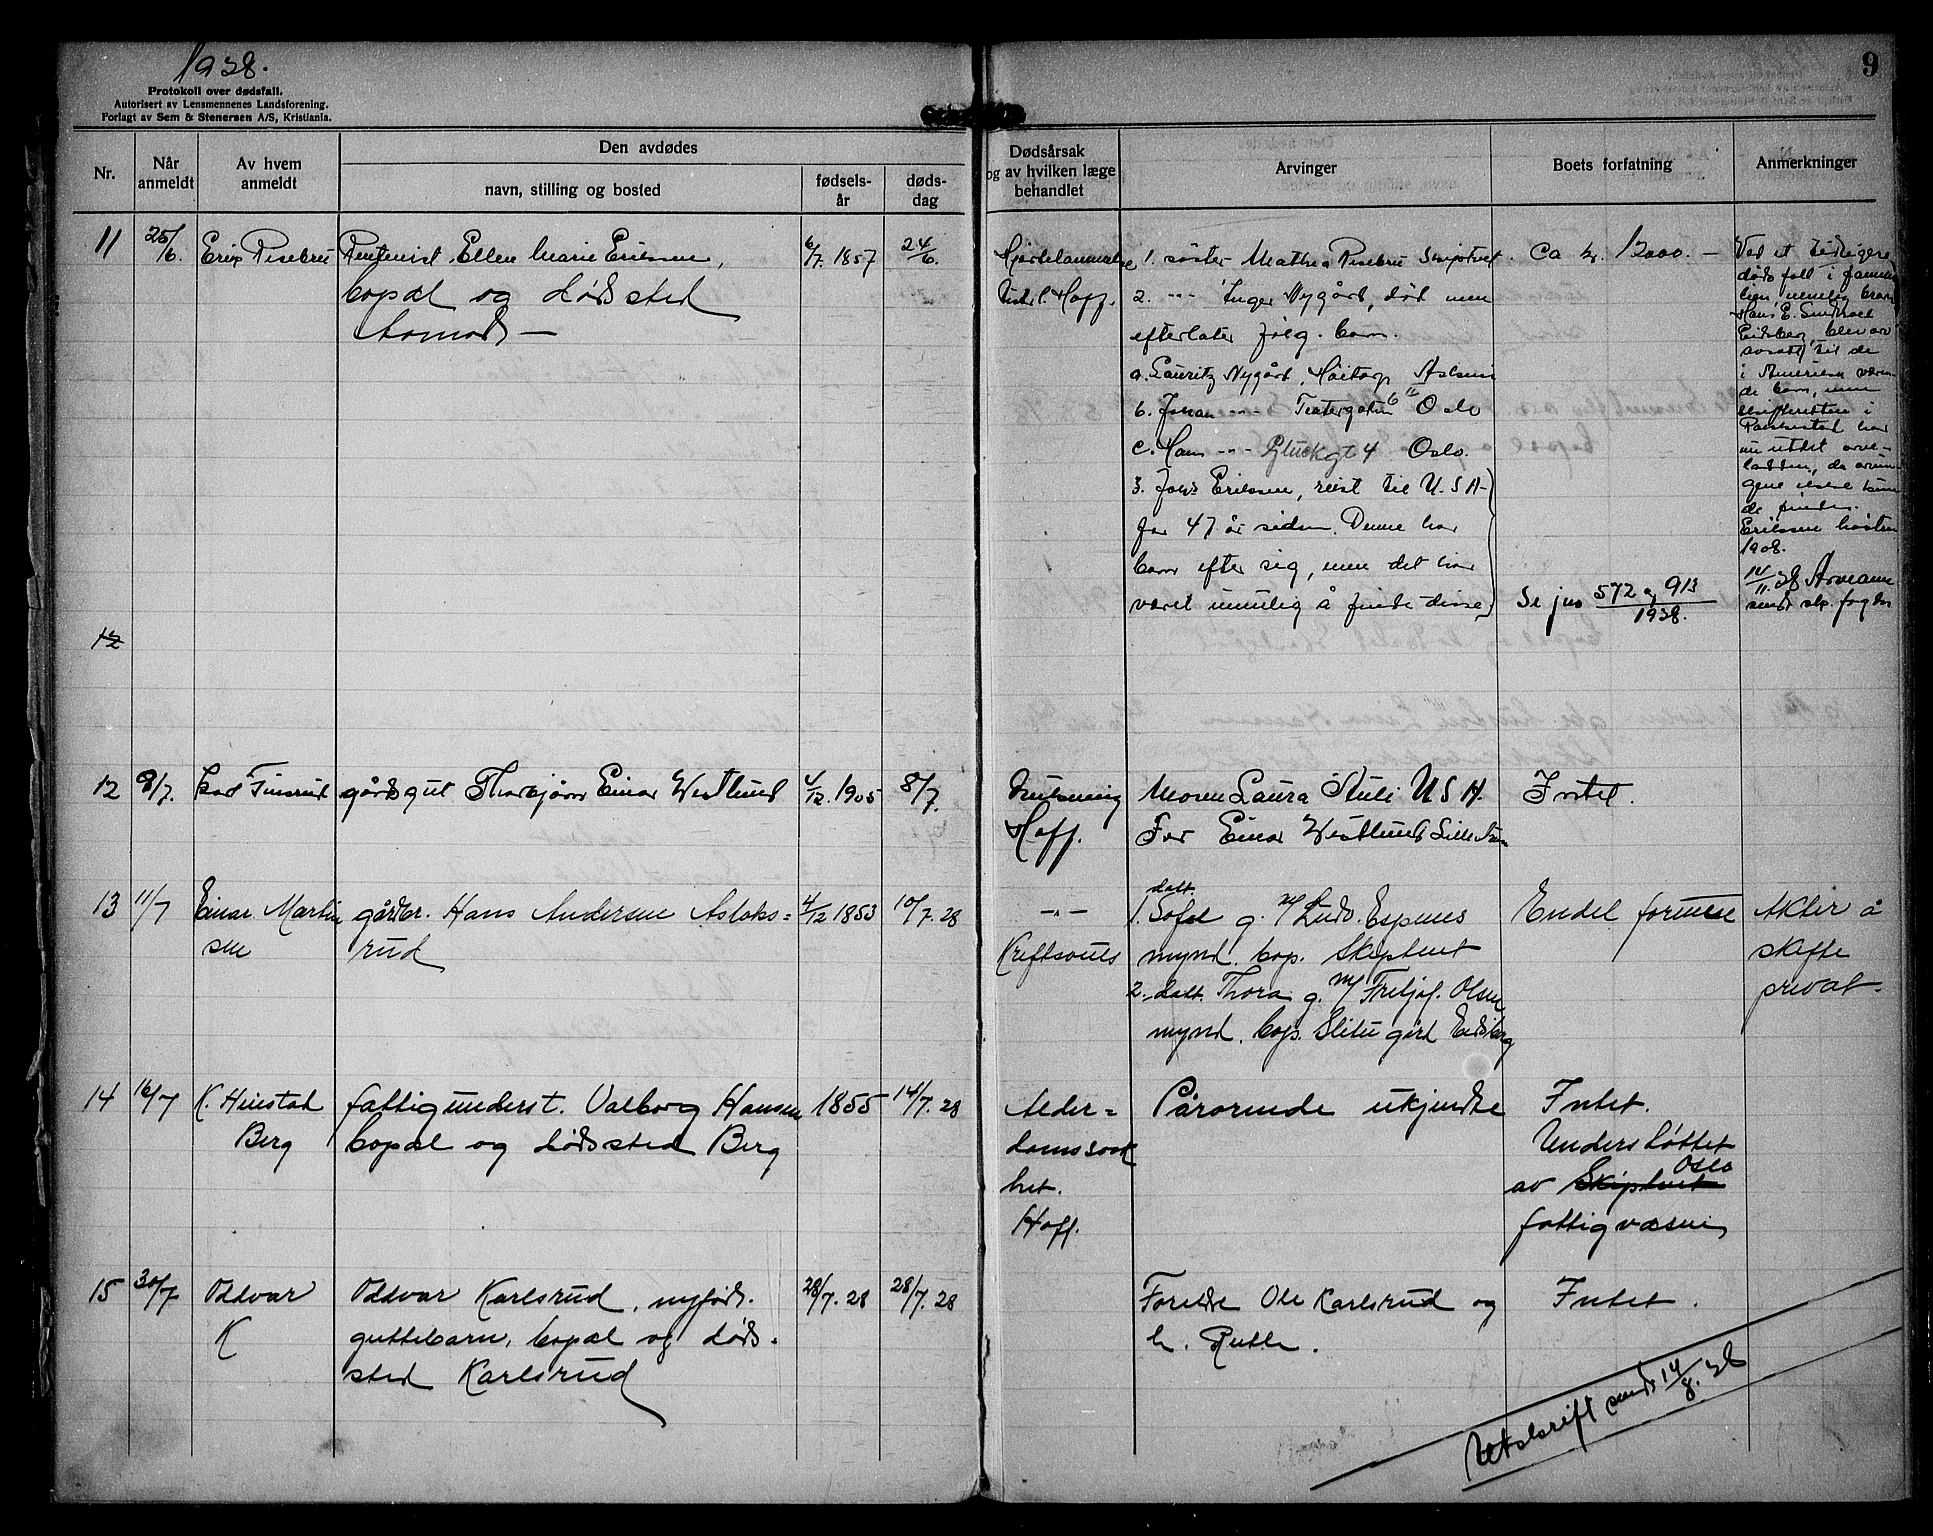 1928.
9
Protokoll over dødsfall.
Autorisert av Lensmennenes Landsforening.
Forlagt av Sem & Stenersen A/S, Kristiania.
Nr.
Når anmeldt
Av hvem anmeldt
Den avdødes
navn, stilling og bosted
fødsels-år
døds-dag
Dødsårsak og av hvilken læge behandlet
Arvinger
Boets forfatning
Anmerkninger
11 25/6. Erik Risebru
Rentenist Ellen Marie Eriksen,
bopæl og dødssted
6/7. 1857 24/6.
Hjertelammelse
Distl. Hoff.
1. søster Mathea Risebru Skiptvet
2. -"- Inger Nygård, død men
efterlater følg. barn.
a. Lauritz Nygård, Høitorp Askim
b. Johan -"- Teatergaten 6 II Oslo
c. Hans -"- Gluckgt 4 Oslo.
3. Johs Eriksen, reist til U.S.A.
for 47 år siden. Denne har
barn efter sig, men det har
været umulig å finde disse
Ca kr. 12000. —
Se jnr 572 og 913
1928.
Ved et tidligere
dødsfall i fammi
lien, nemlig bror
Hans E.
Eidsberg, blev arv
avsatt til de
i Amerika væren
de barn, men
skifteretten i
Rakkestad har
nu utdelt arve-
lodden, da arvin
gene ikke kun
de findes.
Eriksen
1908.
14/11. 28
12
12 9/7. Karl Finsrud
gårdsgut Thorbjørn Einar Westlund
4/12. 1905 8/7.
Drukning
Hoff.
Moren Laura Stuli U S A.
Far Einar Westlund
Intet.
13 11/7 Einar Martin
sen
gårdbr. Hans Andersen Asloks=
rud
4/12 1853 10/7. 28
-"-
Kreftsvuls
datt.
1. Sofie g. m/ Ludv. Espenes
mynd. bop. Skiptvet
2. datt. Thora g. m/ Fritjof. Olsen
mynd. bop. Slitu gård Eidsberg
Endel formue
Akter å
skifte
privat.
14 16/7 K. Heiestad
Berg
fattigunderst. Valborg Hansen
bopæl og dødssted Berg
1855 14/7. 28
Alder=
domssvak
het.
Hoff.
Pårørende ukjendte
Intet.
Understøttet
Oslo
av Skiptvet
fattigvæsen
15 30/7 Oddvar
K
Oddvar Karlsrud, nyfødt.
guttebarn, bopæl og døds.
sted Karlsrud
28/7. 28 28/7. 28
Foreldre Ole Karlsrud og
h. Ruth.
Intet.
Utskrift sendt 14/8. 28